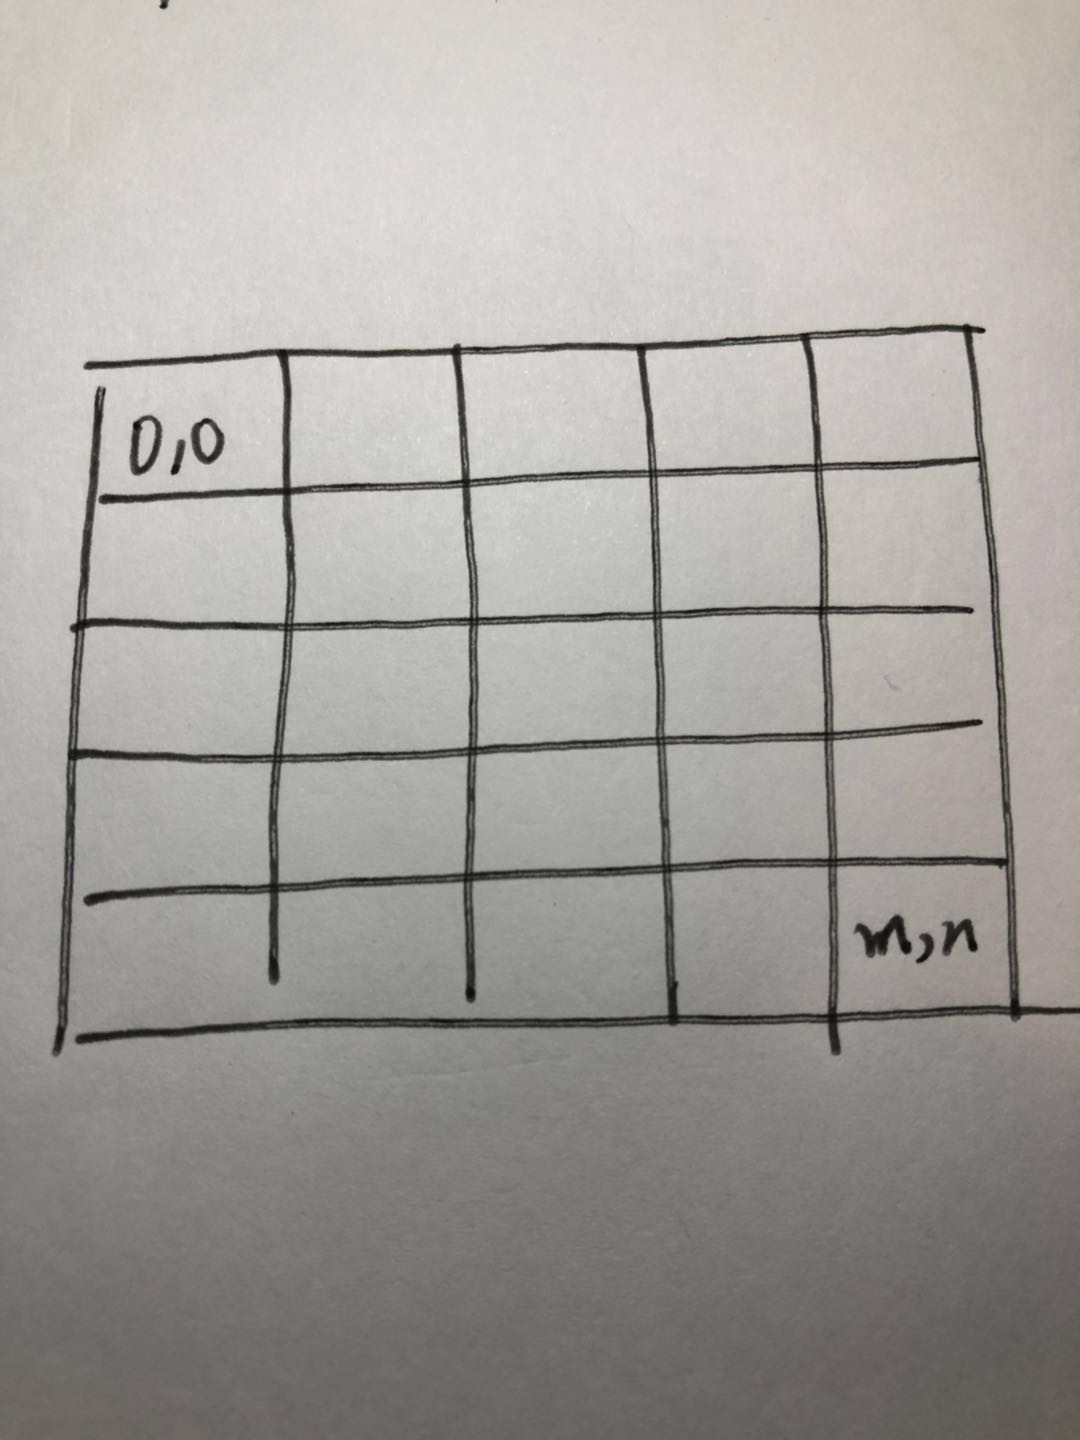 0,0
m,n